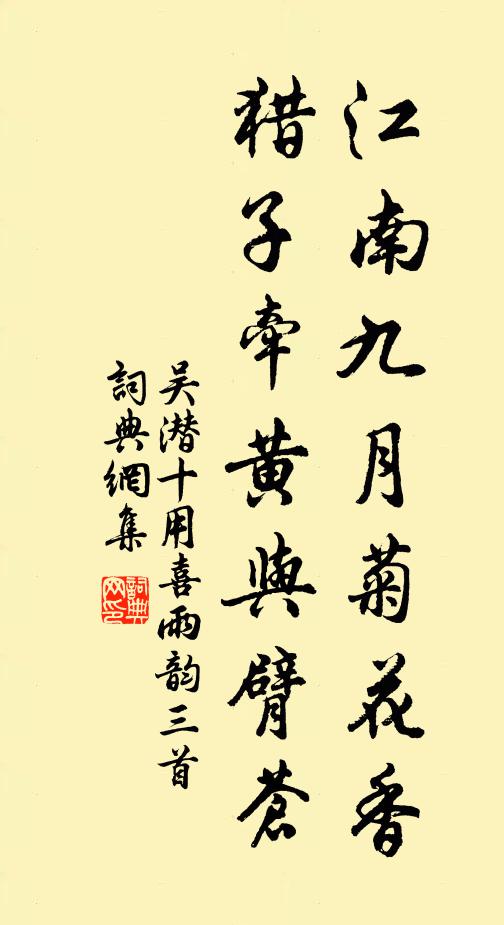 江南九月菊花香
猎子牵黄與臂蒼
吴潜十用喜雨韵三首
詞典網集
詞典網印